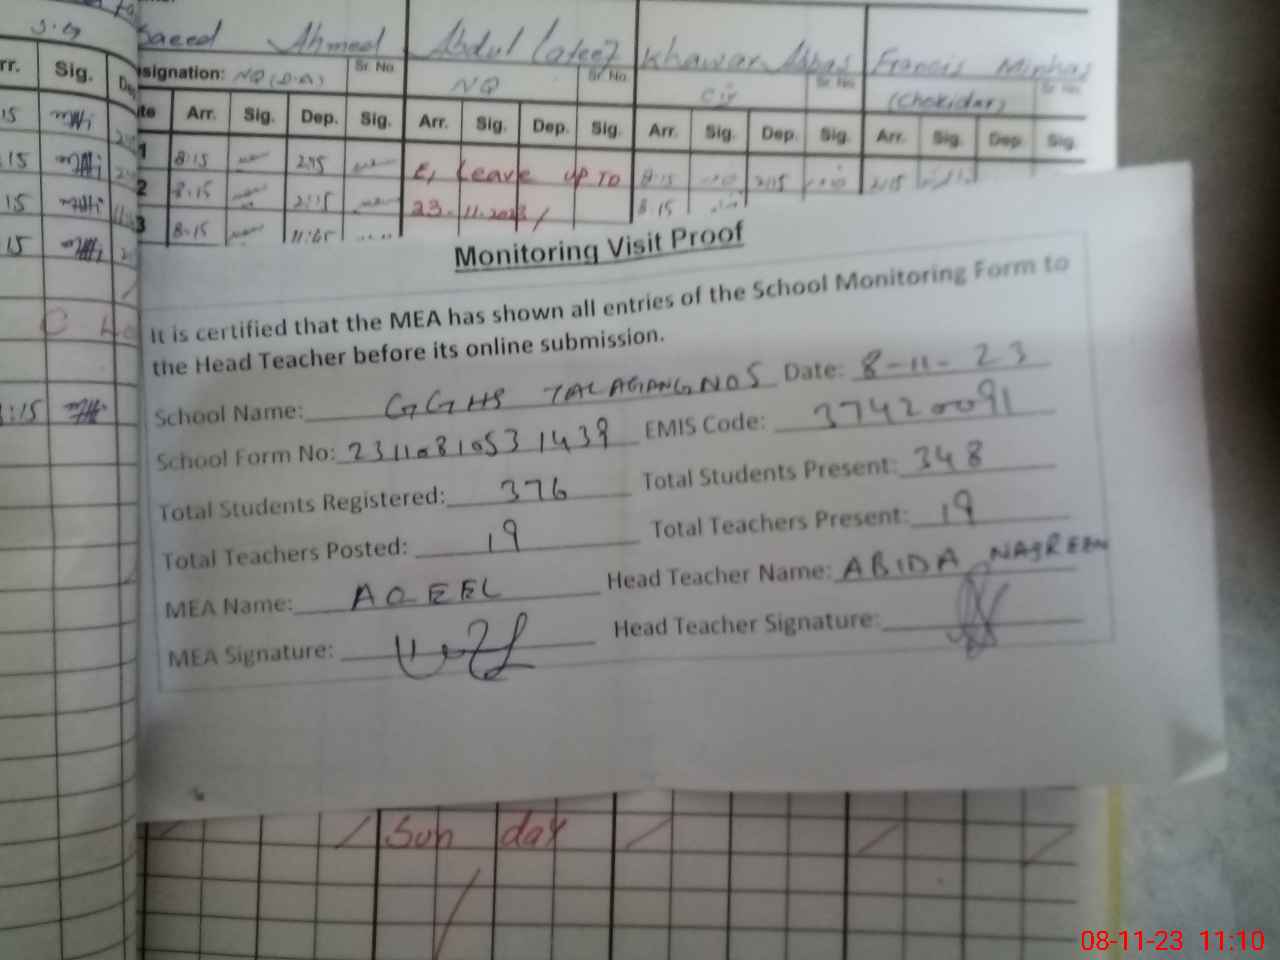 Saeed Ahmed Abdul Lateef Khawar Abbas Francis Minhas
signation: NQ (D.A) Sr. No. NQ Sr. No. Sr. No. (Chokidar) Sr. No.
rr. Sig. De
te Arr. Sig. Dep. Sig. Arr. Sig. Dep. Sig. Arr. Sig. Dep. Sig. Arr. Sig. Dep. Sig.
1 8:15 2:15 E, Leave up To 8:15 2:15
2 8:15 2:15 23.11.2023/ 8:15
3 8:15 11:45
Monitoring Visit Proof
It is certified that the MEA has shown all entries of the School Monitoring Form to
the Head Teacher before its online submission.
School Name: GGHS TALAGANG NO5 Date: 8-11-23
School Form No: 23110810531439 EMIS Code: 37420091
Total Students Registered: 376 Total Students Present: 348
Total Teachers Posted: 19 Total Teachers Present: 19
MEA Name: AQEEL Head Teacher Name: ABIDA NASREEN
MEA Signature: Head Teacher Signature:
Sun day
08-11-23 11:10